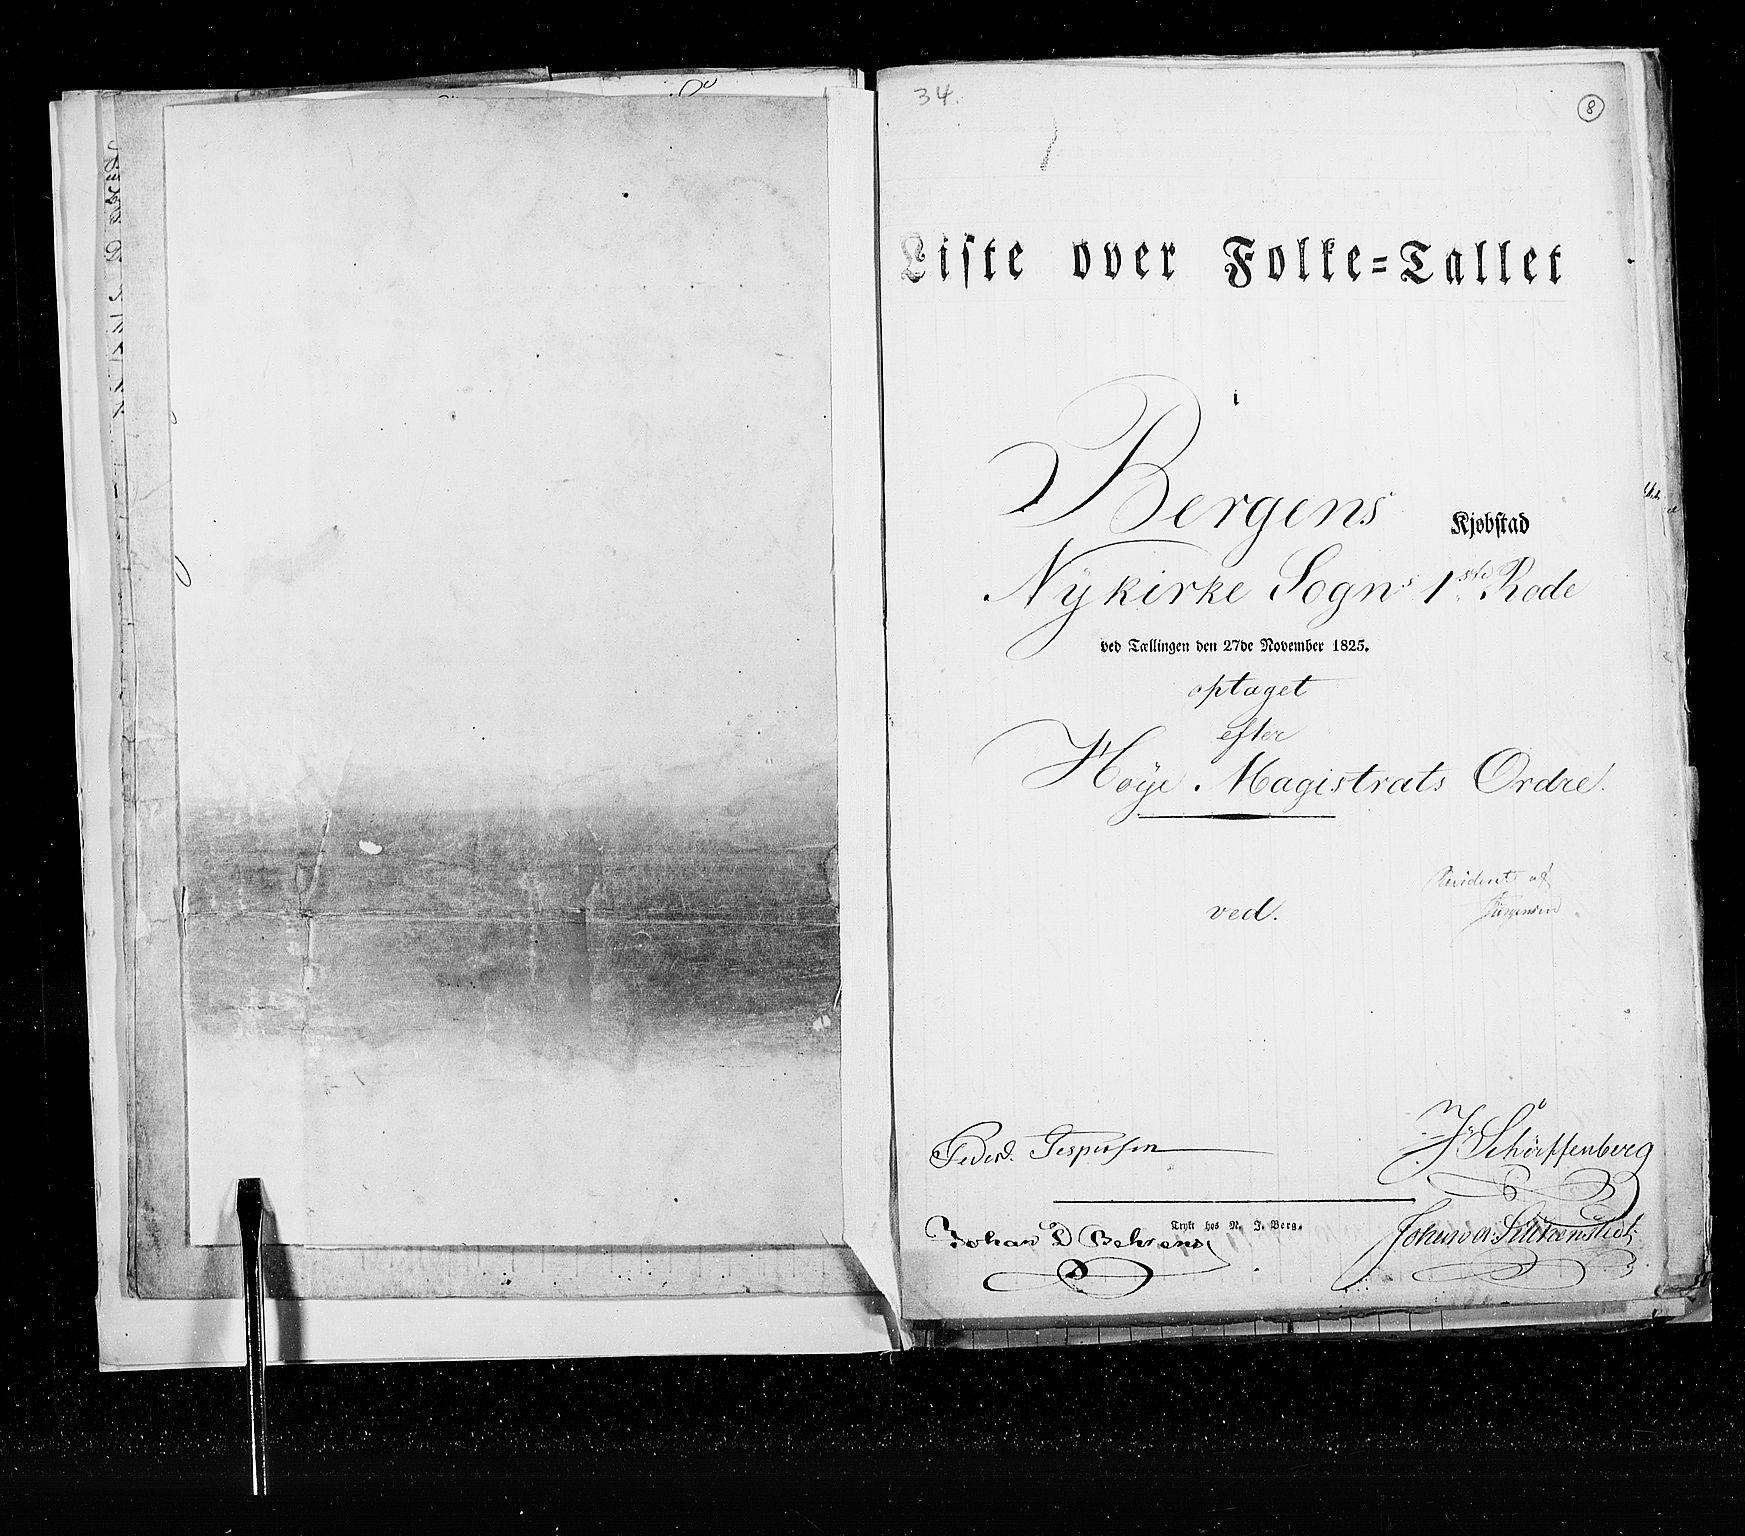 34.
8
Liste over Folke=Tallet
i
Bergens Kjøbstad
Nÿkirke Sogns 1ste Rode
ved Tællingen den 27de November 1825.
optaget
efter
Høÿe Magistrats Ordre.
ved.
Revideret af
Jürgensen
Peder Jespersen
Trykt hos N. J. Berg.
Johan D Behrens